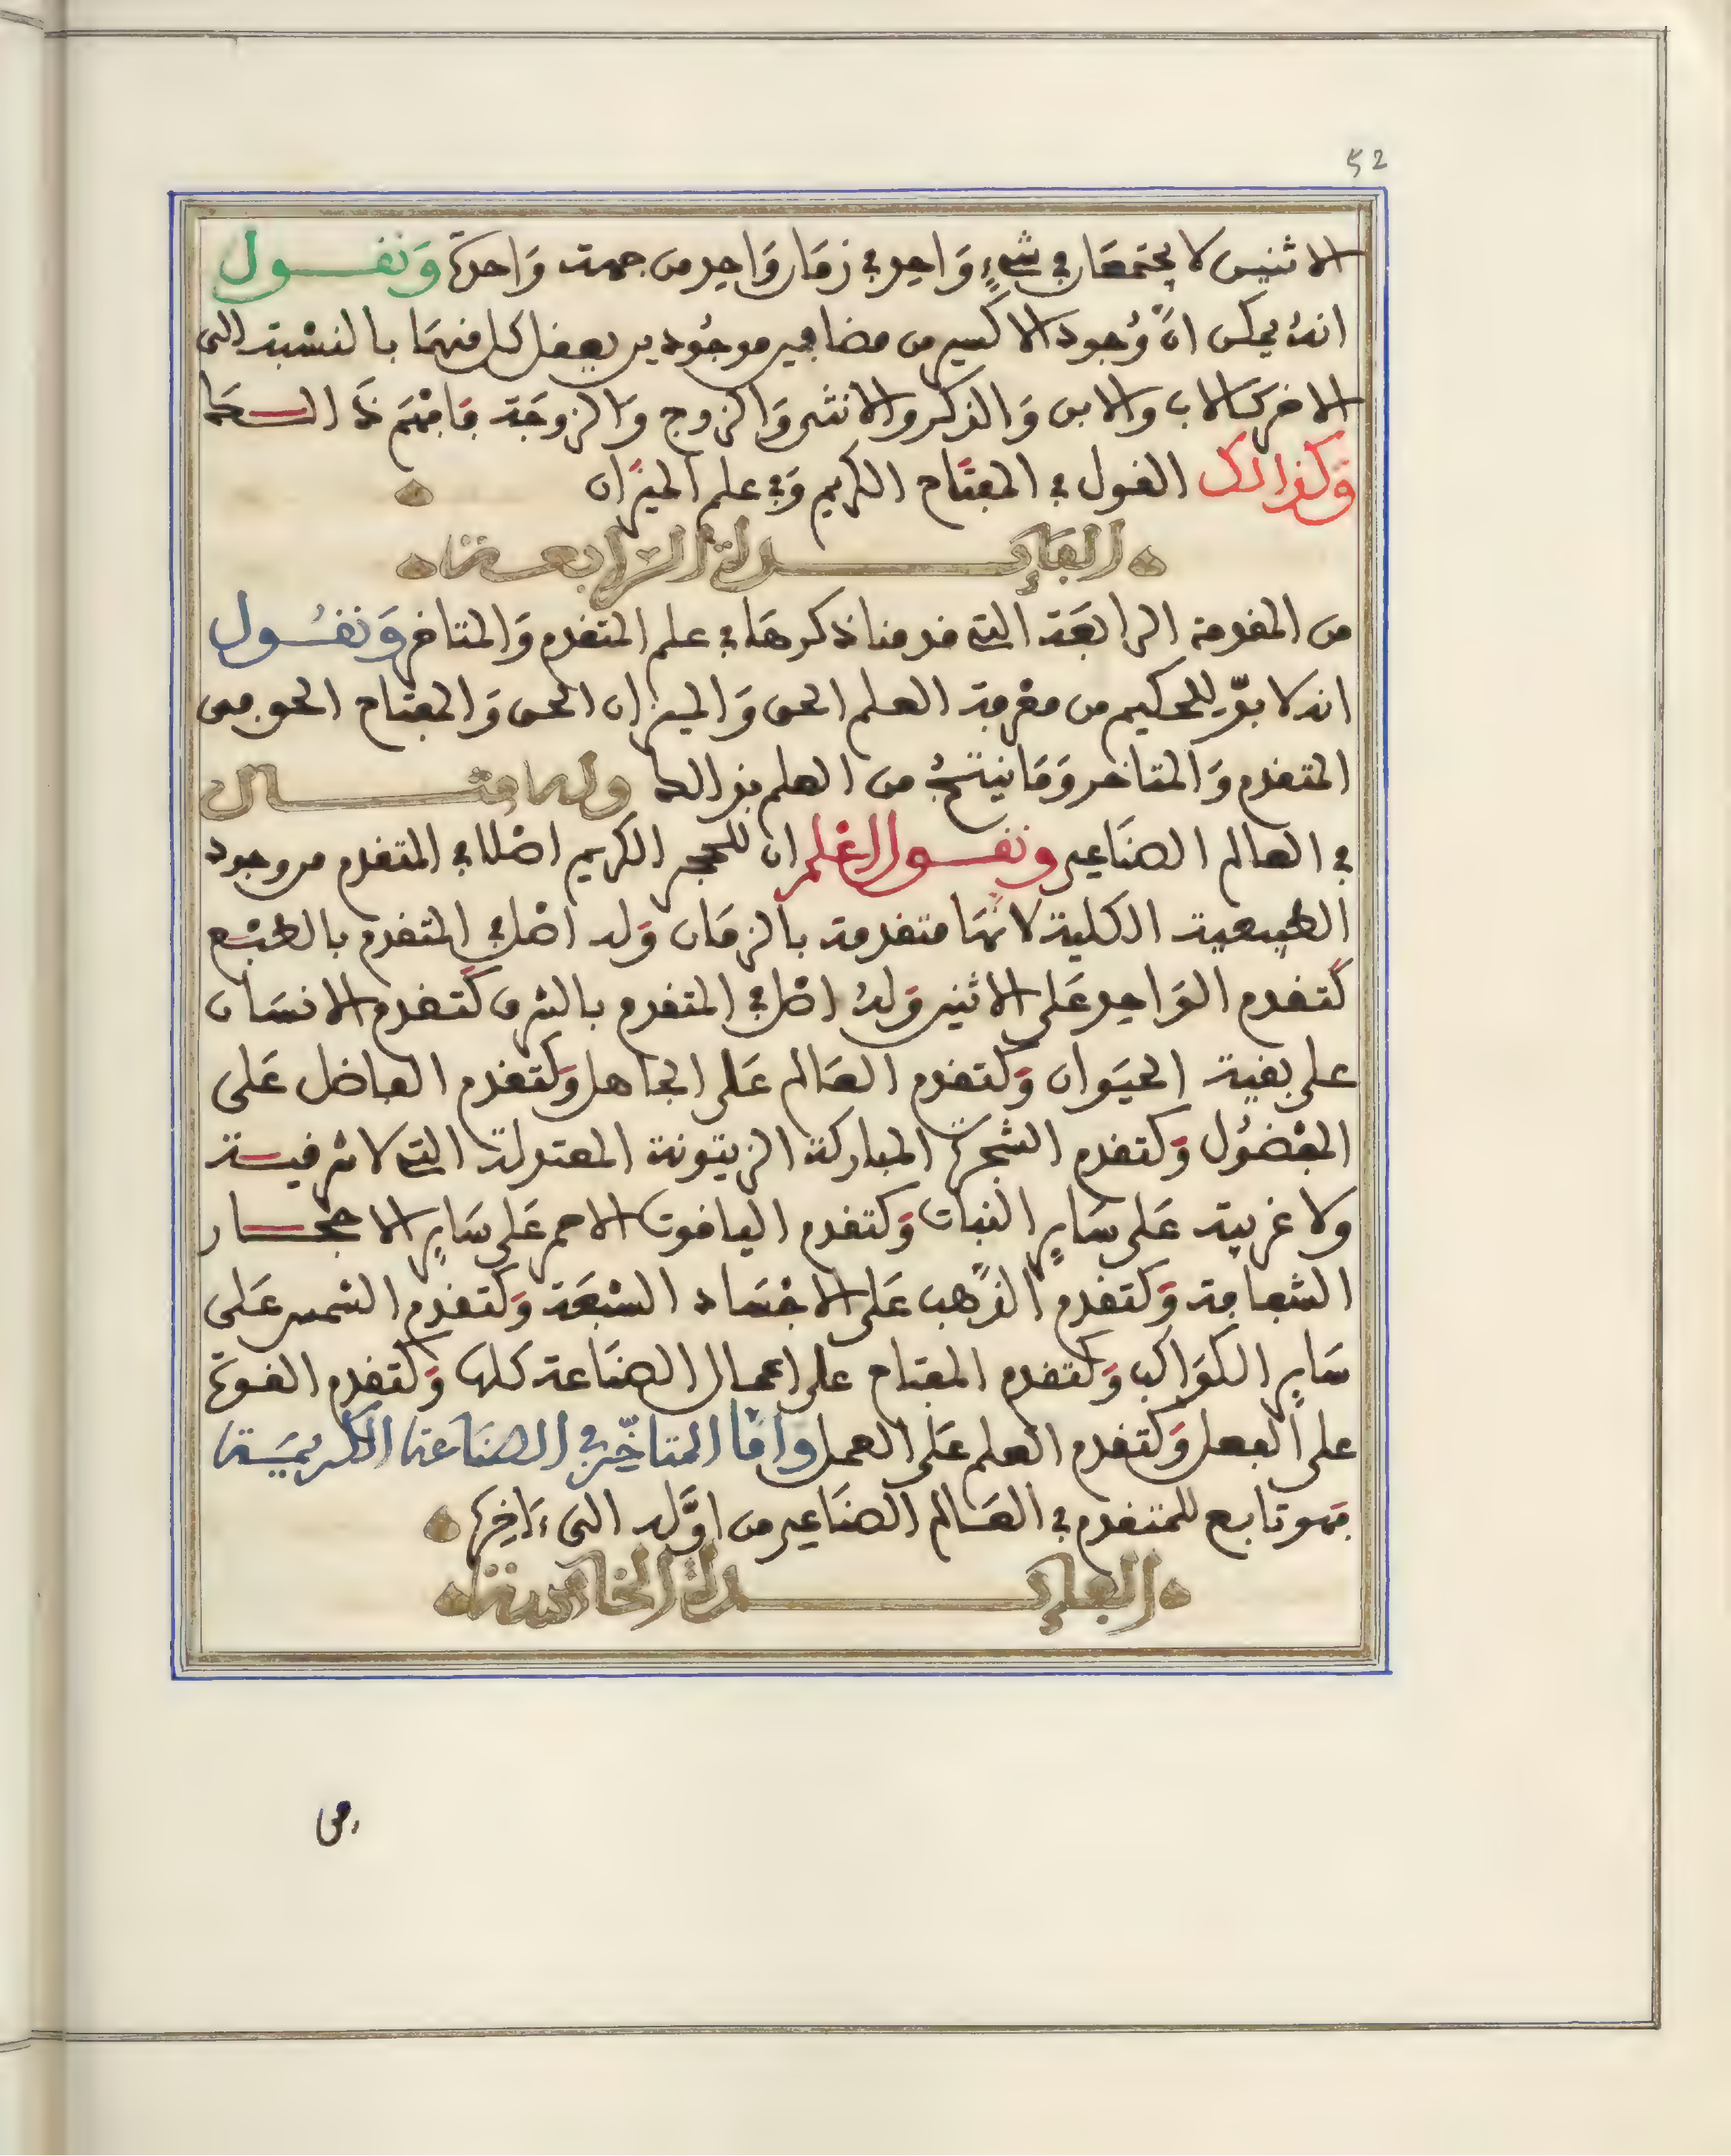 52
الاثنين لا يجتمعان في شيءٍ وَاحد في زمَان وَاحد من جهة وَاحدة وَنقـول
انهُ يمكن انَّ وُجود الاكسير من مضافين موجُودين يعقل كل منهمَا بالنسْبة الى
الاخر كالاب والابن وَالذكر والانثى وَالزوج وَالزوجَة فافهَم ذَالكَ
وَكذالك القول في المفتَاح الكريم وَفي علم الميزَان
الفَايِـدة الرابعـة
من المقدمة الرابعَة التي قدمنا ذكرهَا في علم المتقدم وَالمتاخر وَنقُـول
انه لا بدّ للحكيم من معْرفة العلم الحق وَالميزان الحق وَالمفتاح الحق من
المتقدم وَالمتاخر وَمَا ينتجُ من العلم بذالك وله مثـال
في العالم الصنَاعي ونقـول اعْلم ان للحجر الكريم اصْلا في المتقدم من وجود
الطبيعية الكلية لانهَا متقدمة بالزمَان وَله اصْل في المتقدم بالطبْع
كَتقدم الوَاحد عَلى الاثنين وَلهُ اصْل في المتقدم بالشرف كَتقدم الانسَان
على بقية الحيَوان وَكتقدم العَالم عَلى الجاهل وَكتقدم الفاضل عَلى
المفْضُول وَكتقدم الشجرَة المباركة الزيتونة المعتدلة التي لا شرقيـة
ولا غربية عَلى سَايِر النبَات وَكتقدم الياقوت الاحمر عَلى سَايِر الاحجـار
الشفافة وَكتقدم الذهَب عَلى الاجْسَاد السبْعَة وَكتقدم الشمس عَلى
سَايِر الكوَاكب وَكتقدم المفتاح على اعمال الصنَاعة كلها وَكتقدم القوة
على الفعل وَكتقدم العلم عَلى العمل وامَّا المتاخِّر في الصنَاعة الكريميَـة
فهو تابع للمتقدم في العَالم الصنَاعي من اوَّله الى ءَاخِرهِ
الفايِـدة الخامسة
من